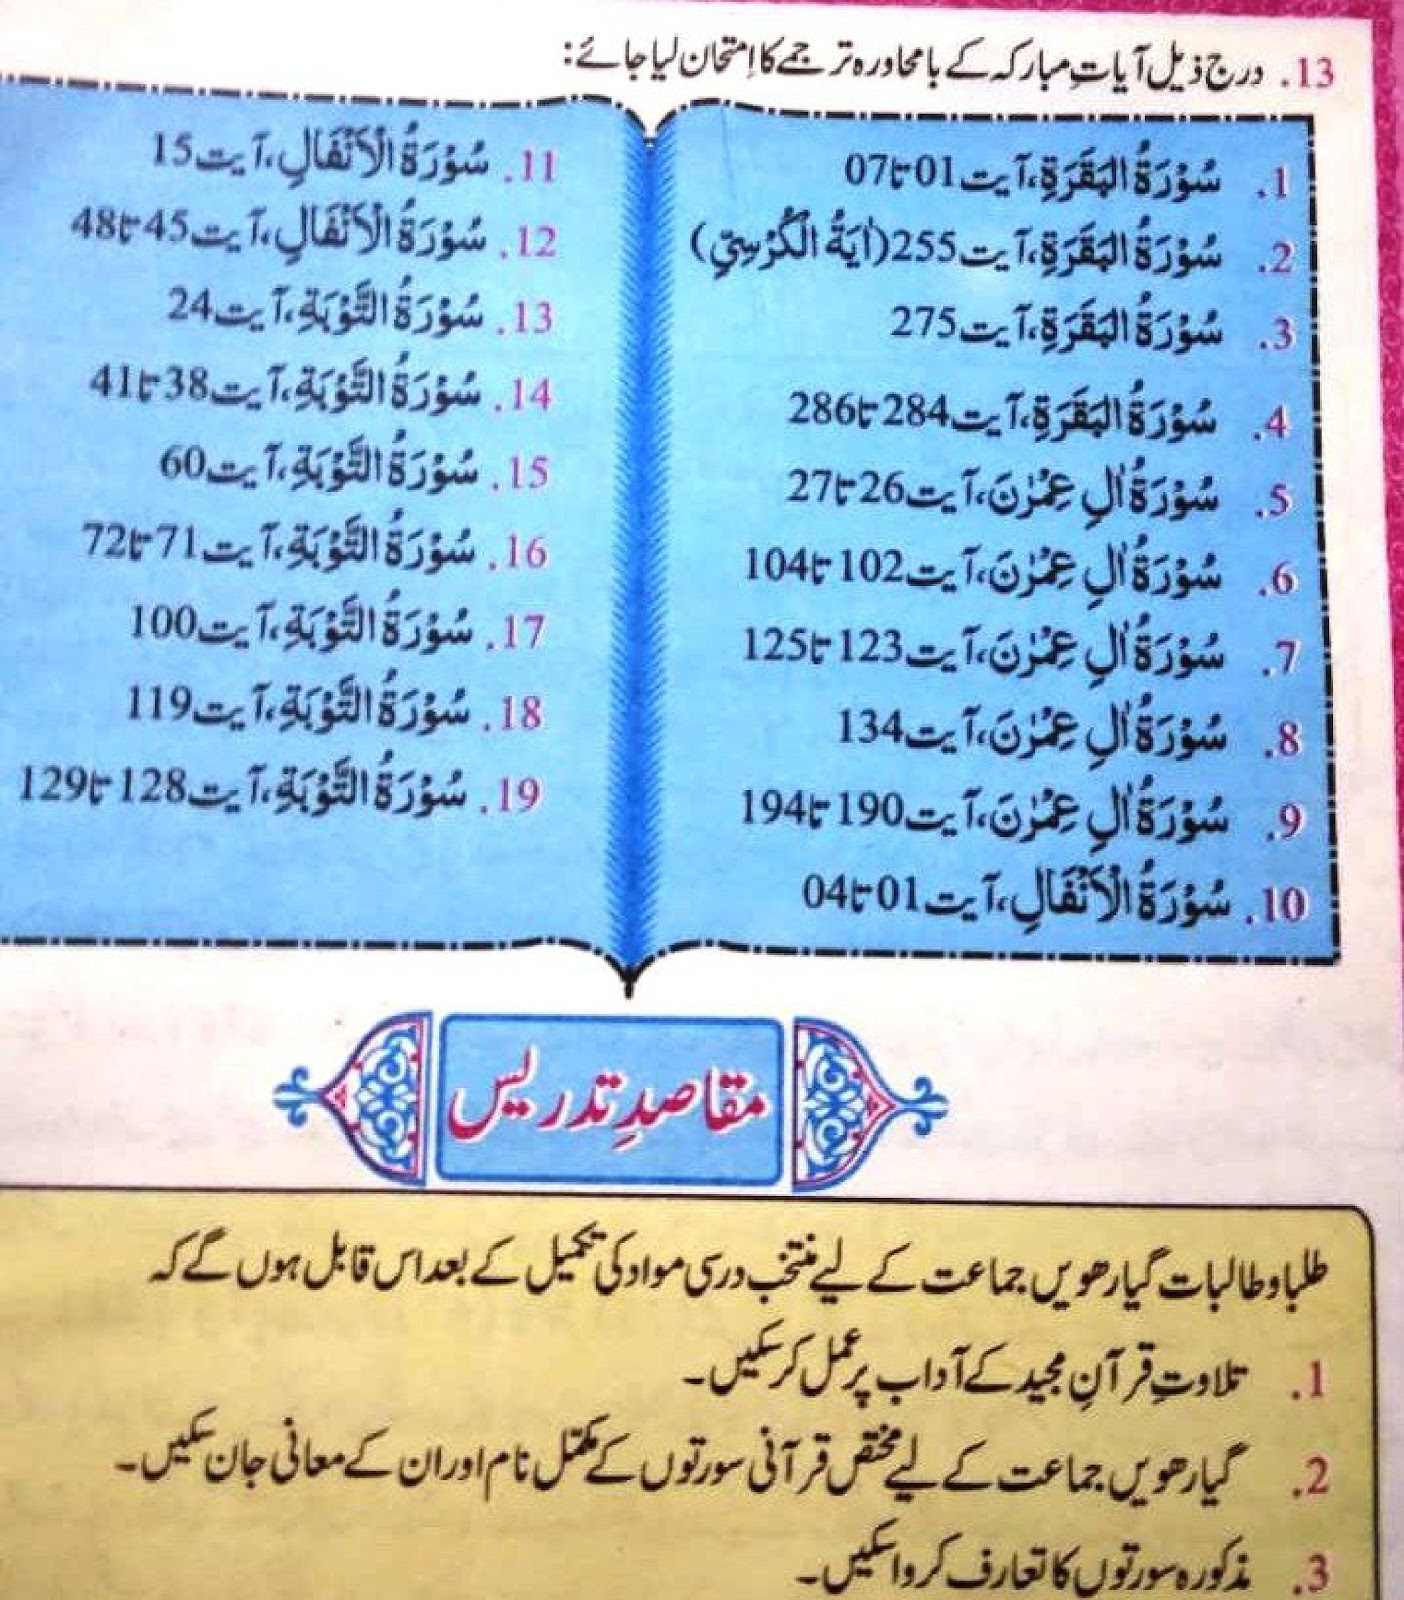 13. درج ذیل آیاتِ مبارکہ کے بامحاورہ ترجمے کا اِمتحان لیا جائے:
1. سُوْرَۃُ الْبَقَرَۃِ، آیت 01 تا 07
2. سُوْرَۃُ الْبَقَرَۃِ، آیت 255 (اٰیَۃُ الْکُرْسِیِّ)
3. سُوْرَۃُ الْبَقَرَۃِ، آیت 275
4. سُوْرَۃُ الْبَقَرَۃِ، آیت 284 تا 286
5. سُوْرَۃُ اٰلِ عِمْرٰنَ، آیت 26 تا 27
6. سُوْرَۃُ اٰلِ عِمْرٰنَ، آیت 102 تا 104
7. سُوْرَۃُ اٰلِ عِمْرٰنَ، آیت 123 تا 125
8. سُوْرَۃُ اٰلِ عِمْرٰنَ، آیت 134
9. سُوْرَۃُ اٰلِ عِمْرٰنَ، آیت 190 تا 194
10. سُوْرَۃُ الْاَنْفَالِ، آیت 01 تا 04
11. سُوْرَۃُ الْاَنْفَالِ، آیت 15
12. سُوْرَۃُ الْاَنْفَالِ، آیت 45 تا 48
13. سُوْرَۃُ التَّوْبَۃِ، آیت 24
14. سُوْرَۃُ التَّوْبَۃِ، آیت 38 تا 41
15. سُوْرَۃُ التَّوْبَۃِ، آیت 60
16. سُوْرَۃُ التَّوْبَۃِ، آیت 71 تا 72
17. سُوْرَۃُ التَّوْبَۃِ، آیت 100
18. سُوْرَۃُ التَّوْبَۃِ، آیت 119
19. سُوْرَۃُ التَّوْبَۃِ، آیت 128 تا 129
مقاصدِ تدریس
طلبا و طالبات گیارھویں جماعت کے لیے منتخب درسی مواد کی تکمیل کے بعد اس قابل ہوں گے کہ
1. تلاوتِ قرآنِ مجید کے آداب پر عمل کر سکیں۔
2. گیارھویں جماعت کے لیے مختص قرآنی سورتوں کے مکمّل نام اور ان کے معانی جان سکیں۔
3. مذکورہ سورتوں کا تعارف کروا سکیں۔